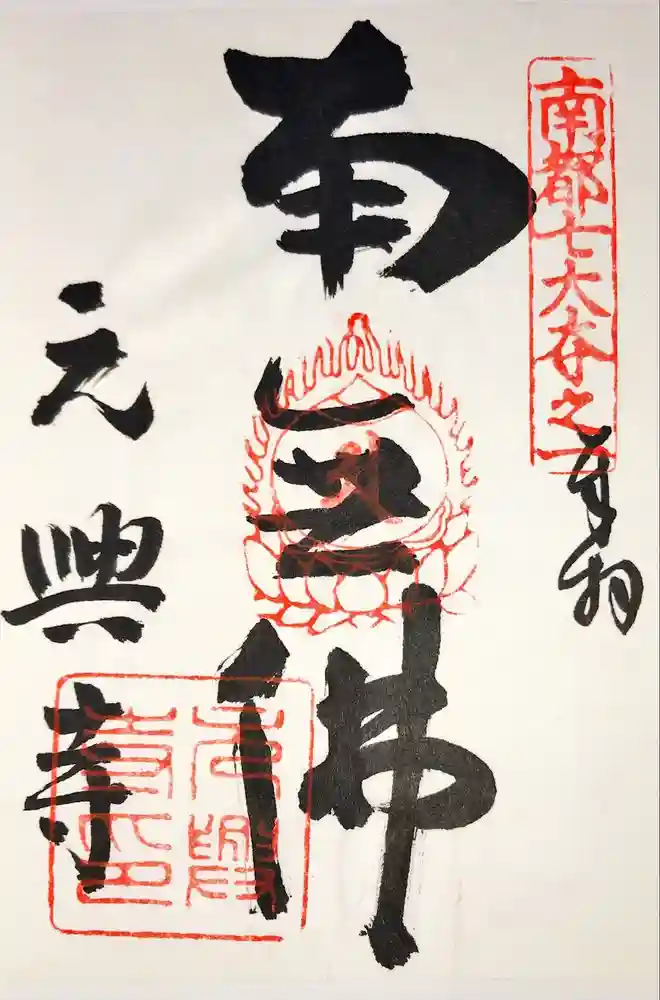 南都七大寺之一
奉拝
南無佛
元興寺
元興寺印